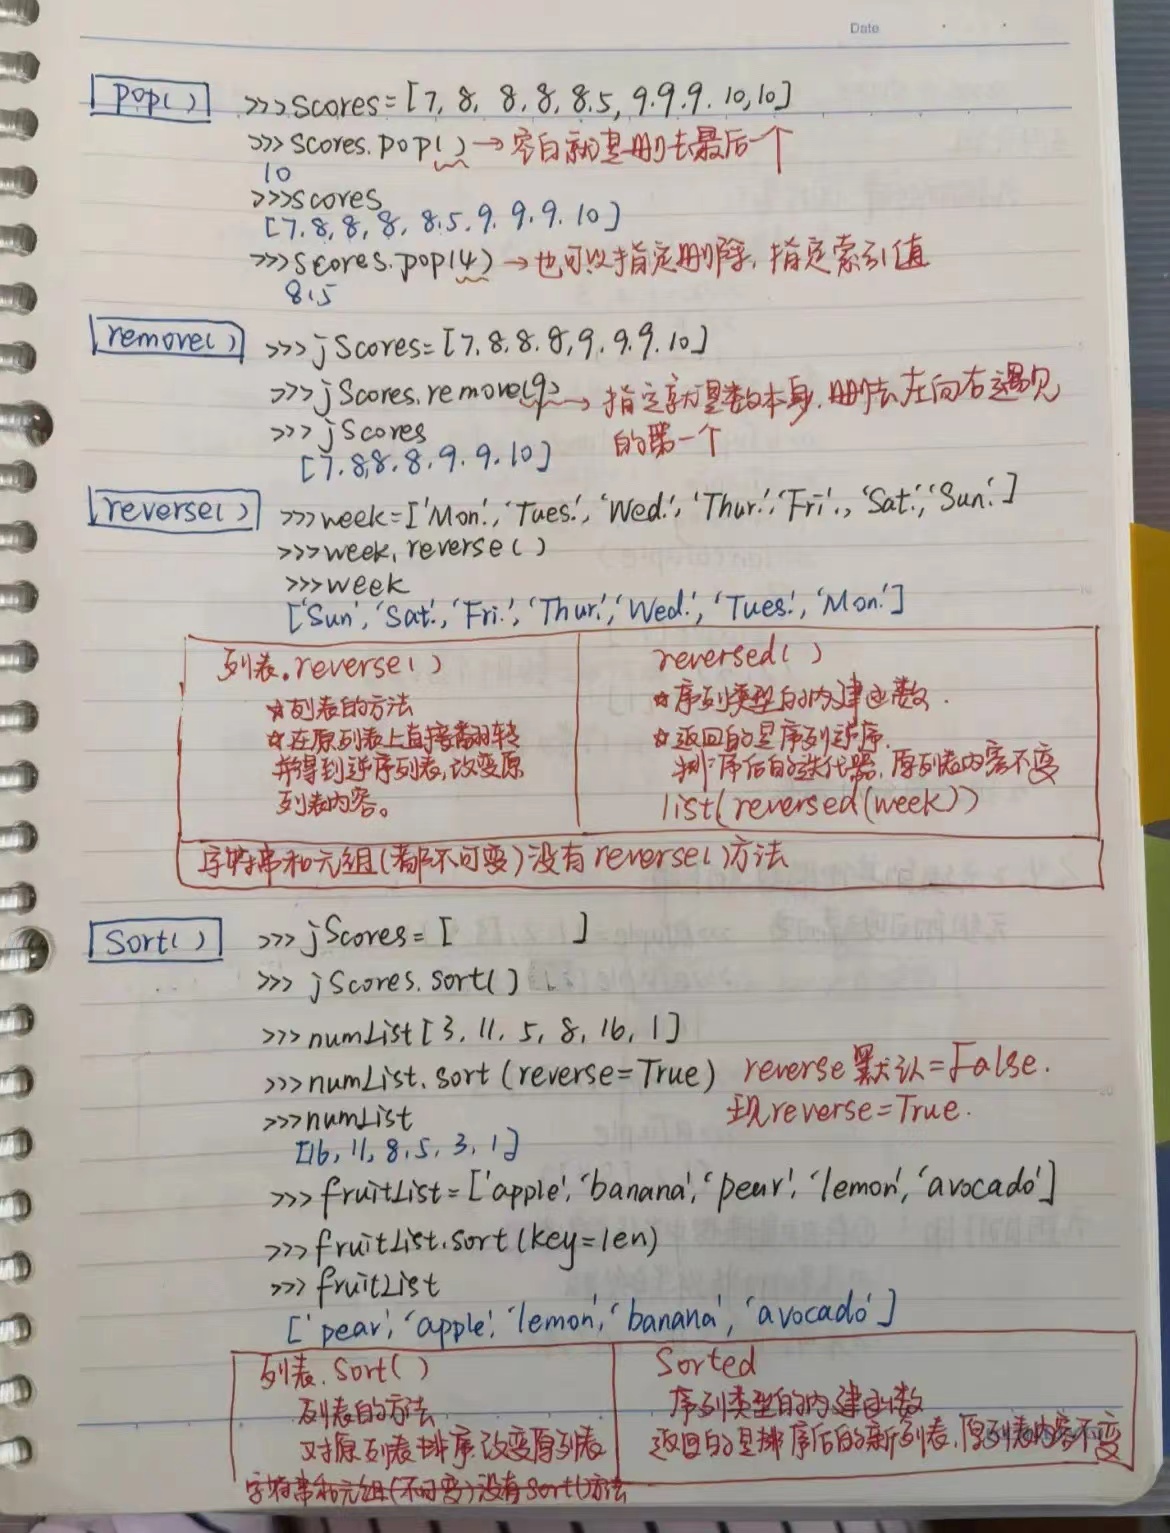 Date
pop() >>>scores=[7, 8, 8, 8, 8.5, 9.9.9.10,10]
>>>scores.pop() → 空白就是删去最后一个
10
>>>scores
[7.8,8,8, 8.5.9.9.9.10]
>>>scores.pop(4) → 也可以指定删除，指定索引值
8.5
remove() >>>jScores=[7.8.8.8,9.9.9.10]
>>>jScores.remove(9) → 指定就是数本身，删去左向右遇见
的第一个
>>>jScores
[7.8,8.8.9.9.10]
reverse() >>>week=['Mon.','Tues.','Wed.','Thur.','Fri.','Sat.','Sun.']
>>>week.reverse()
>>>week
['Sun','Sat.','Fri.','Thur.','Wed.','Tues.','Mon.']
列表.reverse()
☆列表的方法
☆在原列表上直接翻转
并得到逆序列表,改变原
列表内容。
reversed()
☆序列类型的内建函数.
☆返回的是序列逆序
排序后的迭代器，原列表内容不变
list(reversed(week))
字符串和元组(都不可变)没有reverse()方法
Sort() >>>jScores=[ ]
>>>jScores.sort()
>>>numList[3, 11, 5, 8, 16, 1]
>>>numList.sort(reverse=True) reverse默认=False.
现reverse=True.
>>>numList
[16, 11, 8, 5, 3, 1]
>>>fruitList=['apple','banana','pear','lemon','avocado']
>>>fruitList.sort(key=len)
>>>fruitList
['pear','apple','lemon','banana','avocado']
列表.Sort()
列表的方法
对原列表排序,改变原列表
Sorted
序列类型的内建函数
返回的是排序后的新列表，原列表内容不变
字符串和元组(不可变)没有Sort()方法